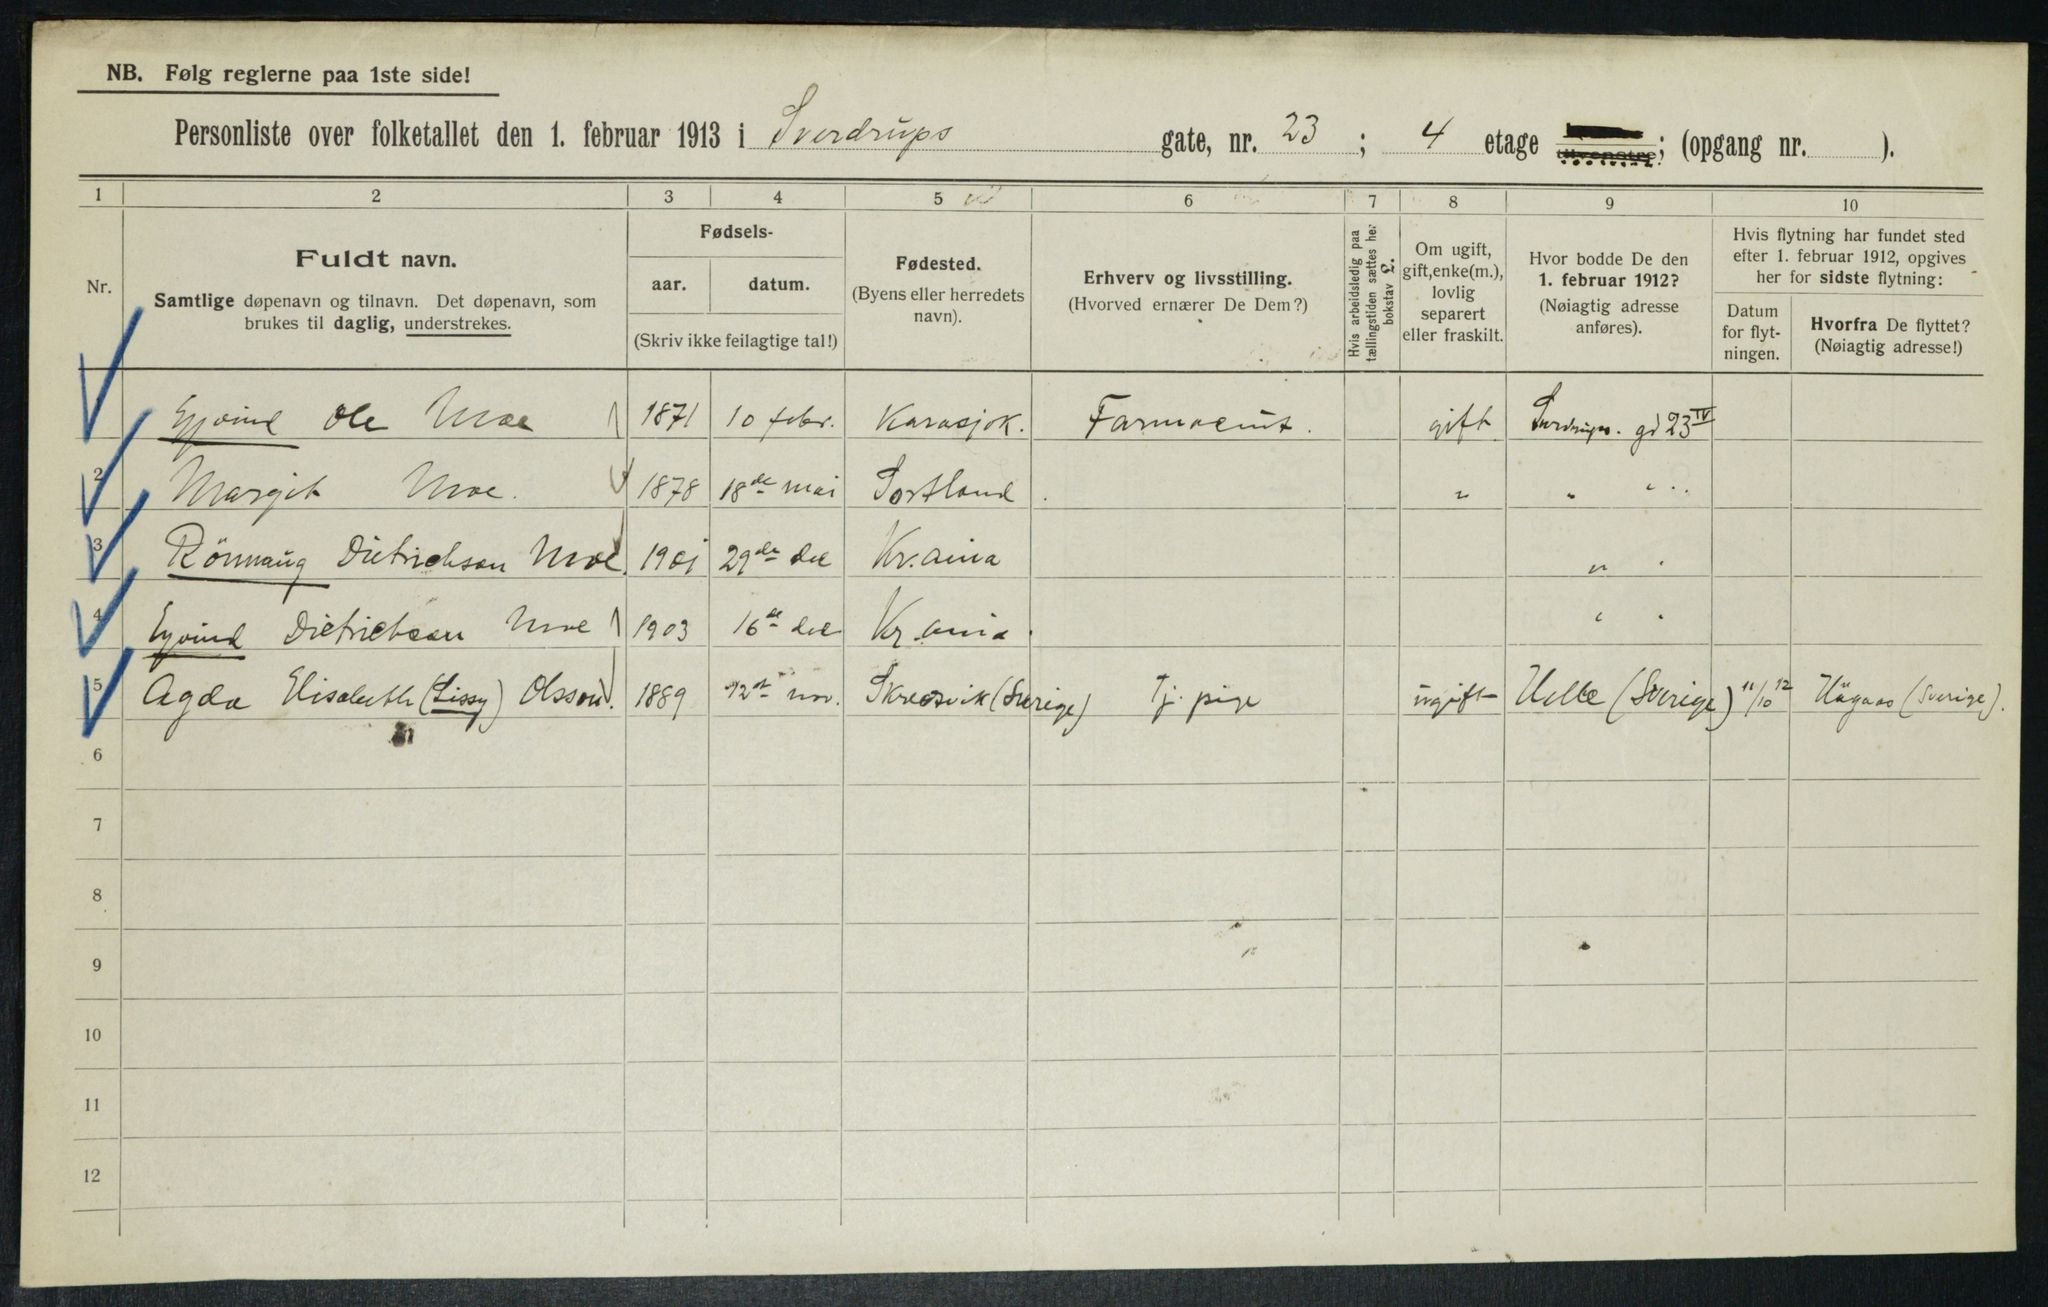 NB. Følg reglerne paa 1ste side!
Personliste over folketallet den 1. februar 1913 i Sverdrups gate, nr. 23 ; 4 etage ; (opgang nr. ).
1 2 3 4 5 6 7 8 9 10
Nr.
Fuldt navn.
Samtlige døpenavn og tilnavn. Det døpenavn, som
brukes til daglig, understrekes.
Fødsels-
aar. datum.
(Skriv ikke feilagtige tal!)
Fødested.
(Byens eller herredets
navn).
Erhverv og livsstilling.
(Hvorved ernærer De Dem?)
Hvis arbeidsledig paa
tællingstiden sættes her
bokstav L.
Om ugift,
gift, enke(m.),
lovlig
separert
eller fraskilt.
Hvor bodde De den
1. februar 1912?
(Nøiagtig adresse
anføres).
Hvis flytning har fundet sted
efter 1. februar 1912, opgives
her for sidste flytning:
Datum
for flyt-
ningen.
Hvorfra De flyttet?
(Nøiagtig adresse!)
Ejvind Ole Moe 1871 10 febr. Karasjok. Farmaceut. gift Sverdrups. gd 23 IV
2 Margit Moe. 1878 18de mai Sortland. " " " ..
3 Rönnaug Dietrichson Moe. 1901 29de dec Kr.ania "
4 Ejvind Dietrichson Moe 1903 16de dec Kr.ania. "
5 Agda Elisabeth (Lissy) Olsson. 1889 12te nov. (Sverige) Tj. pige ugift (Sverige) 11/10 12 (Sverige).
6
7
8
9
10
11
12